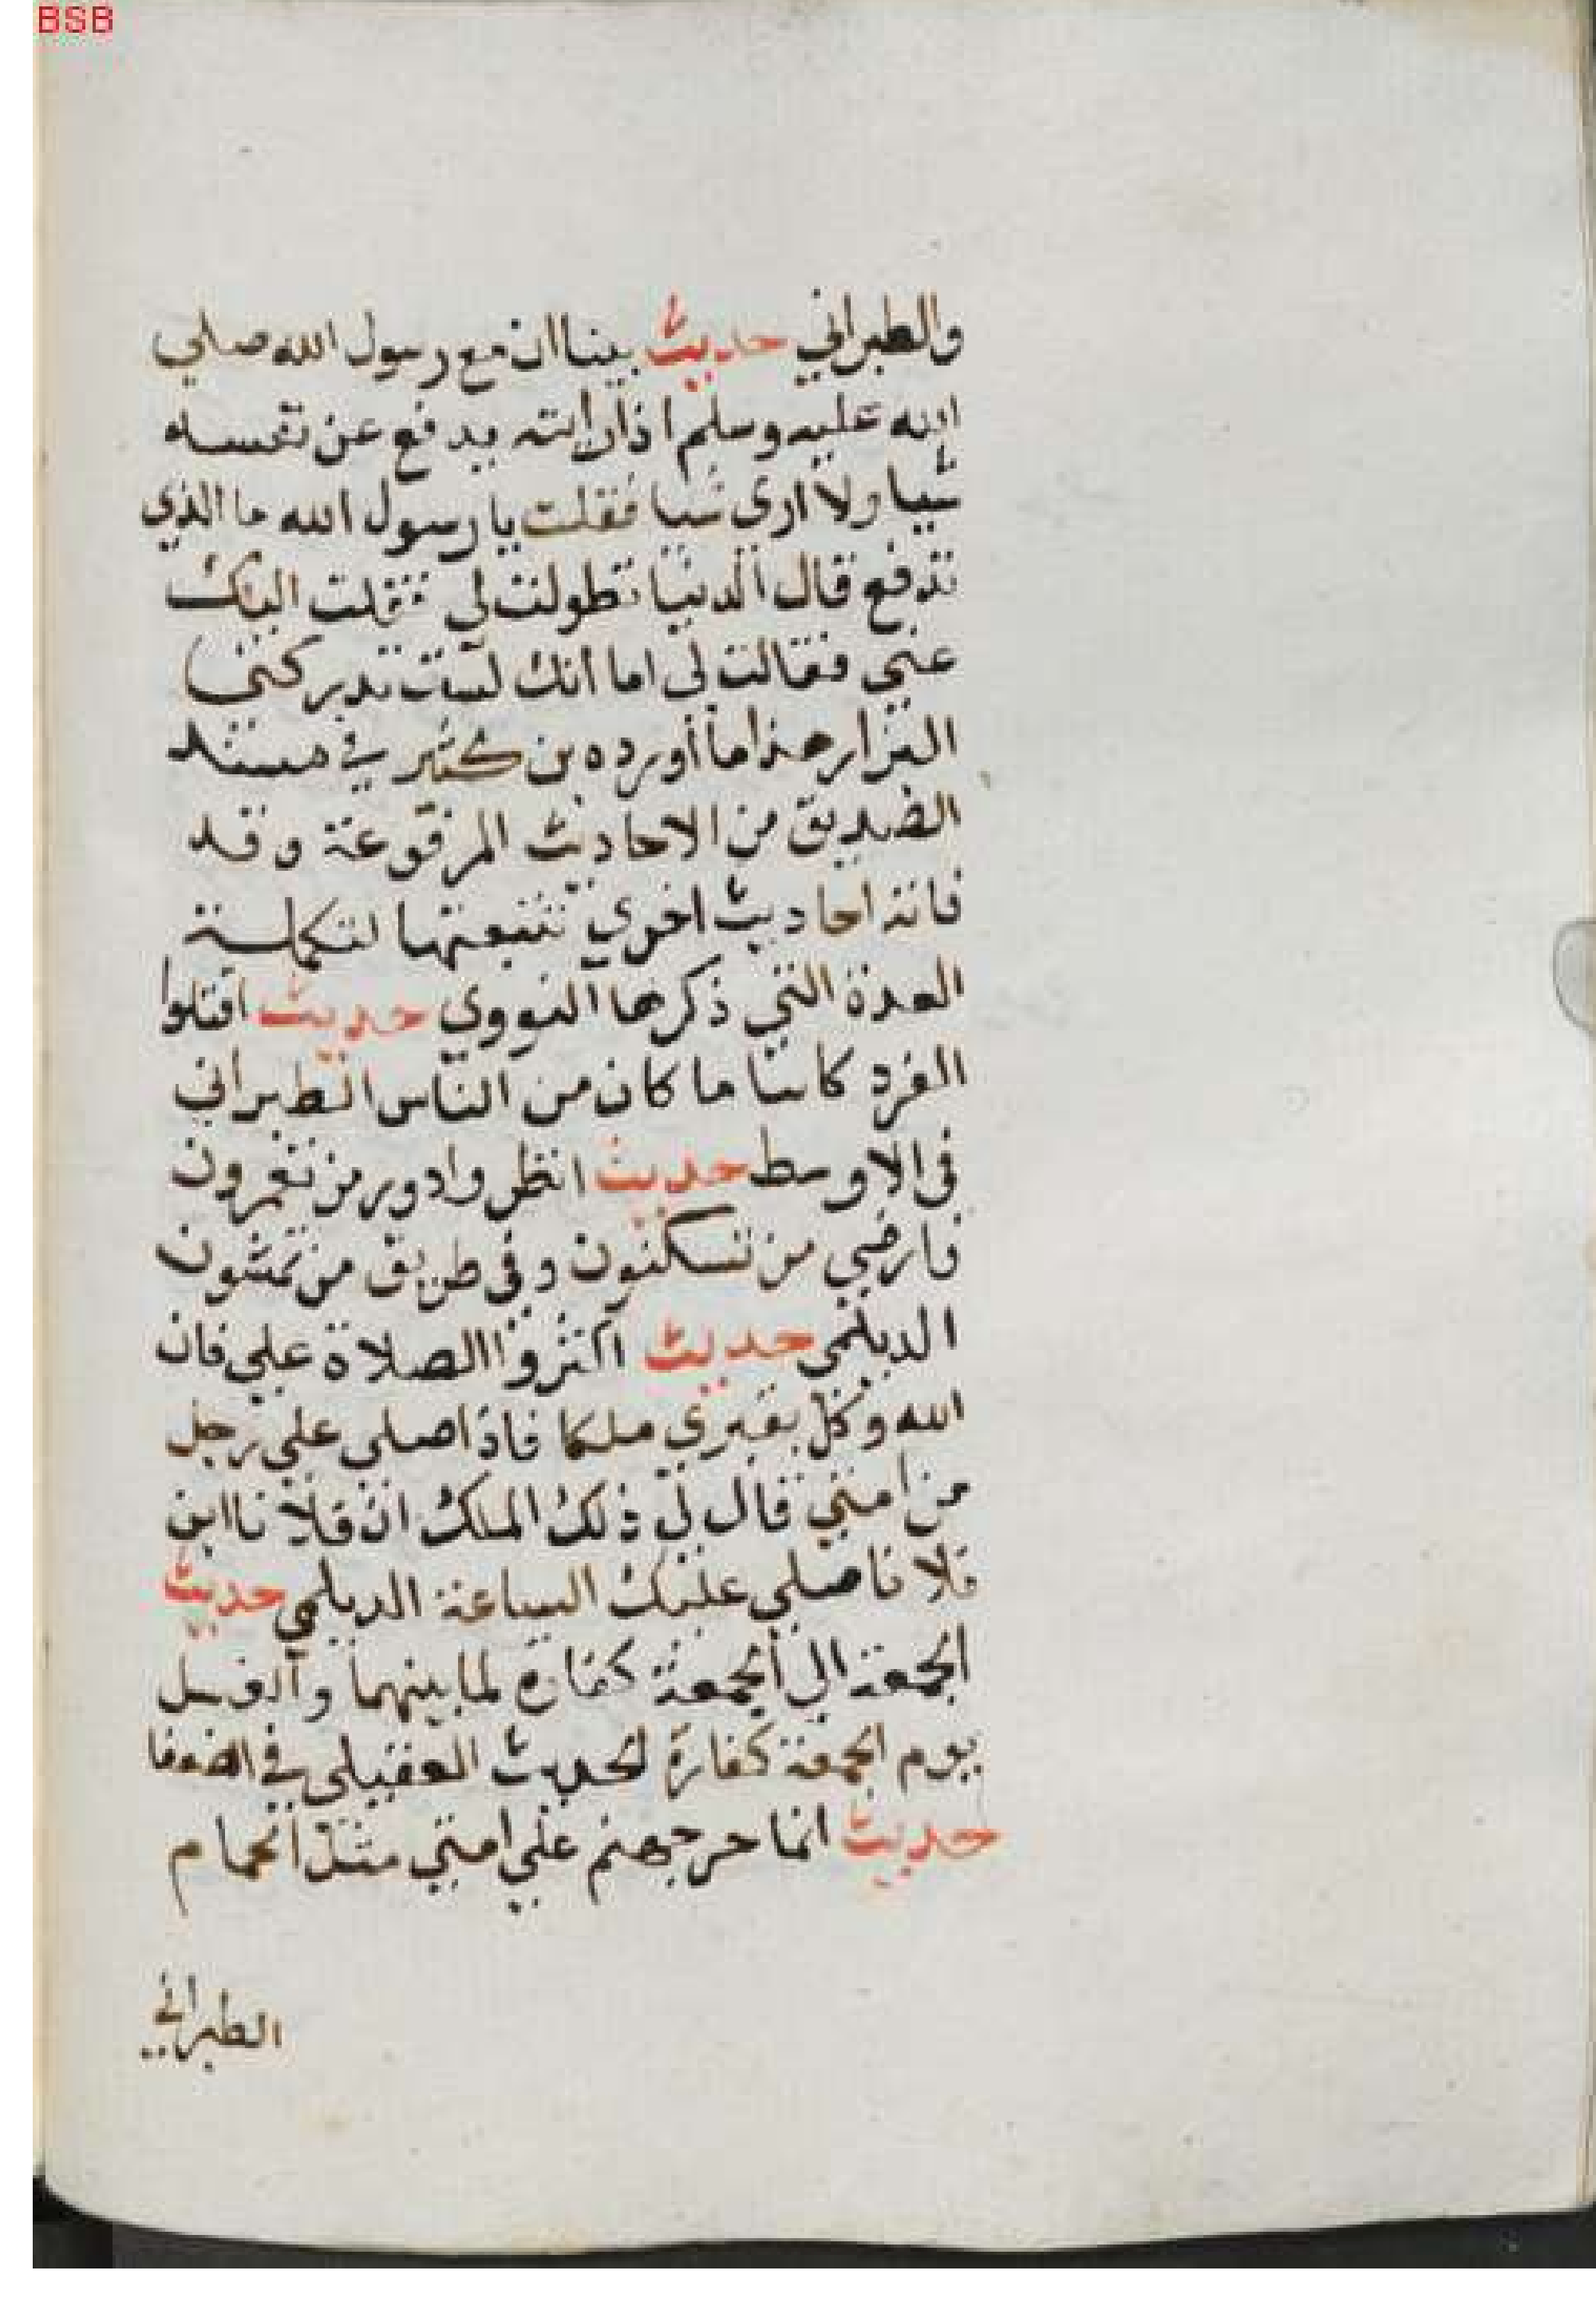 BSB
والطبراني حديث بينا ان مع رسول الله صلي
الله عليه وسلم اذ رايته يدفع عن نفسه
شيا ولا اري شيا فقلت يا رسول الله ما الذي
تدفع قال الدنيا تطولت لي فقلت اليك
عني فقالت لي اما انك لست تدركني
البزار هذا ما أورده بن كثير في مسند
الصديق من الاحاديث المرفوعة وقد
فاته احاديث اخري نتبعتها لتكملة
العدة التي ذكرها النووي حديث اقتلوا
القرد كاىنا ما كان من الناس الطبراني
في الاوسط حديث انظروا دور من تعمرون
وارضي من تسكنون وفي طريق من تمشون
الديلمي حديث أكثروا الصلاة علي فان
الله وكل بقبري ملكا فاذا صلى علي رجل
من امتي قال لي ذلك الملك ان فلانا ابن
فلانا صلي عليك الساعة الديلمي حديث
الجمعة الي الجمعة كفارة لما بينهما والغسل
يوم الجمعة كفارة لحديث العقيلي في الضعفا
حديث انما حر جهنم علي امتي مثل الحمام
الطبراني